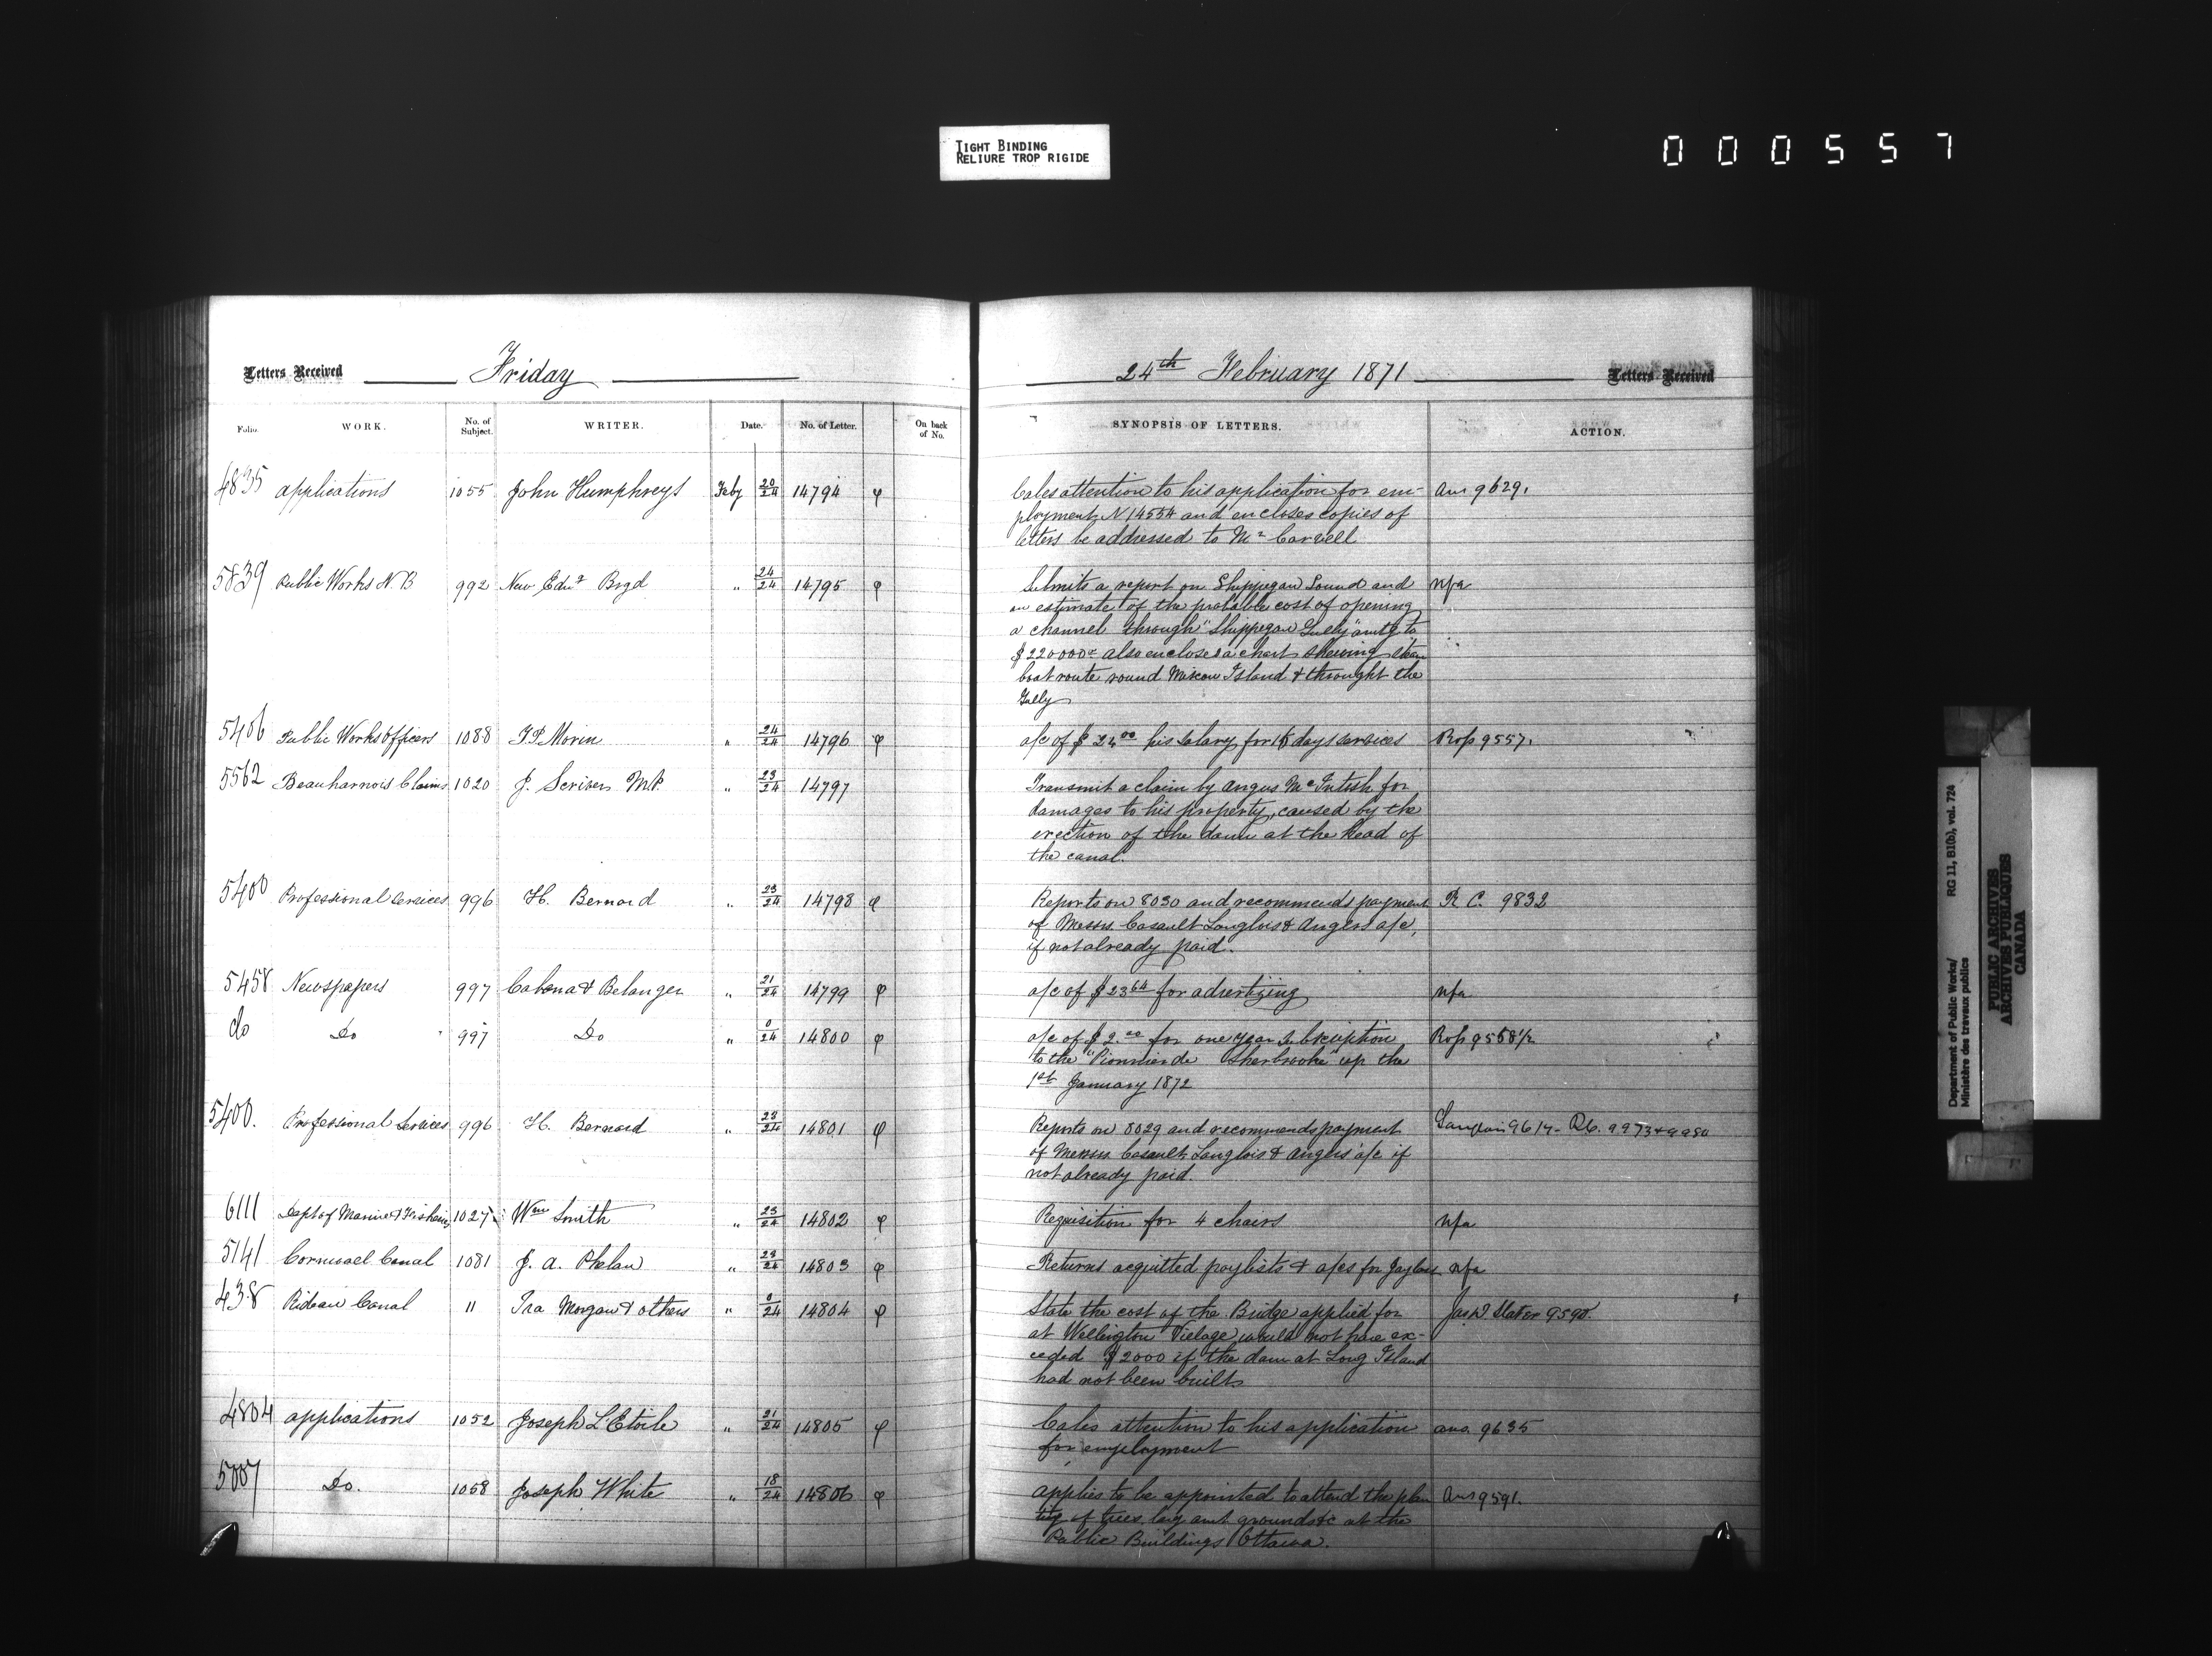 TIGHT BINDING
RELIURE TROP RIGIDE
000557
Letters Received Friday
Folio. WORK. No. of Subject. WRITER. Date. No. of Letter. On back of No.
4835 applications 1055 John Humphreys Feby 20/24 14794 φ
5839 Public Works N.B 992 New Brgd " 24/24 14795 φ
5406 Public Works Officers 1088 Morin " 24/24 14796 φ
5562 Beauharnois Claims 1020 J. Scriver M.P. " 23/24 14797
5400 Professional Services 996 H. Bernard " 23/24 14798 φ
5458 Newspapers 997 & Belanger " 21/24 14799 φ
do Do 997 Do " 0/24 14800 φ
5400. Professional Services 996 H. Bernard " 23/24 14801 φ
6111 Dept of Marine & Fisheries 1027 Wm Smith " 23/24 14802 φ
5141 Cornwall Canal 1081 J. A. Phelan " 23/24 14803 φ
438 Rideau Canal 11 Ira Morgan & others " 0/24 14804 φ
4804 applications 1052 Joseph L'Etoile " 21/24 14805 φ
5007 Do. 1058 Joseph White " 18/24 14806 φ
24th February 1871 Letters Received
SYNOPSIS OF LETTERS. ACTION.
Calls attention to his application for em- Ans 9629.
ployment N 14554 and encloses copies of
letters he addressed to Mr Carvell
Submits a report on Shippegan Sound and nfa
an estimate of the probable cost of opening
a channel through "Shippegan Gully" amtg to
$220000 also encloses a chart shewing steam
boat route round Miscou Island & throught the
Gully
a/c of $ 24 00 his salary for 16 days services 9557.
Transmit a claim by Angus McIntosh for
damages to his property, caused by the
erection of the dam at the head of
the canal.
Reports on 8030 and recommends payment R C. 9832
of Messrs. Casault Langlois & Angers a/c,
if not already paid.
a/c of $ 23 64 for advertizing nfa
a/c of $ 2.00 for one year subscription 9568 1/2
to the "Pionnier de Sherbrooke" up the
1st January 1872
Reports on 8029 and recommends payment 9614 - 9973 & 9980
of Messrs Casault Langlois & Angers a/c if
not already paid.
Requisition for 4 chairs nfa
Returns acquitted paylists & a/cs for nfa
State the cost of the Bridge applied for Slater 9590.
at Wellington Village would not have ex-
ceded $2000 if the dam at Long Island
had not been built
Calls attention to his application ans. 9635
for employment
applies to be appointed to attend the plan Ans 9591.
ting of trees, lay out grounds &c at the
Public Buildings Ottawa.
Department of Public Works/ RG 11, B1(b), vol. 724
Ministère des travaux publics
PUBLIC ARCHIVES
ARCHIVES PUBLIQUES
CANADA